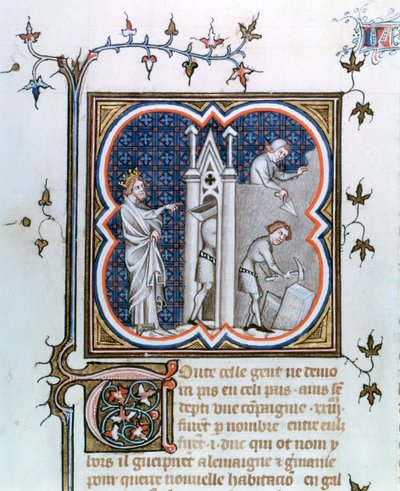 Toute celle gent ne demo
ra pas en celi pais · ains se
depti vne cōpaignie · xxiij
furēt p nombre · entre eulz
furēt · i · duc qui ot nom y
bors il guerpirēt alemaigne & gmanie
pour querre nouuelle habitaciō en gal